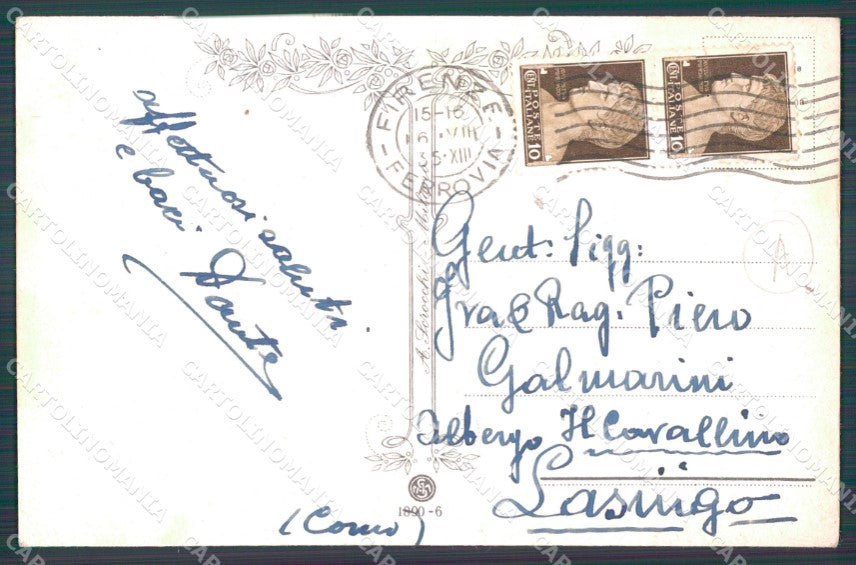 affettuosi saluti
e baci
Dante
FIRENZE
15-16
6 VIII
35·XIII
FERROVIA
POSTE
ITALIANE
10
POSTE
ITALIANE
10
Gent: Sigg:
Gra & Rag. Piero
Galmarini
Albergo Il Cavallino
Lasnigo
(Como)
1890-6
CARTOLINOMANIA